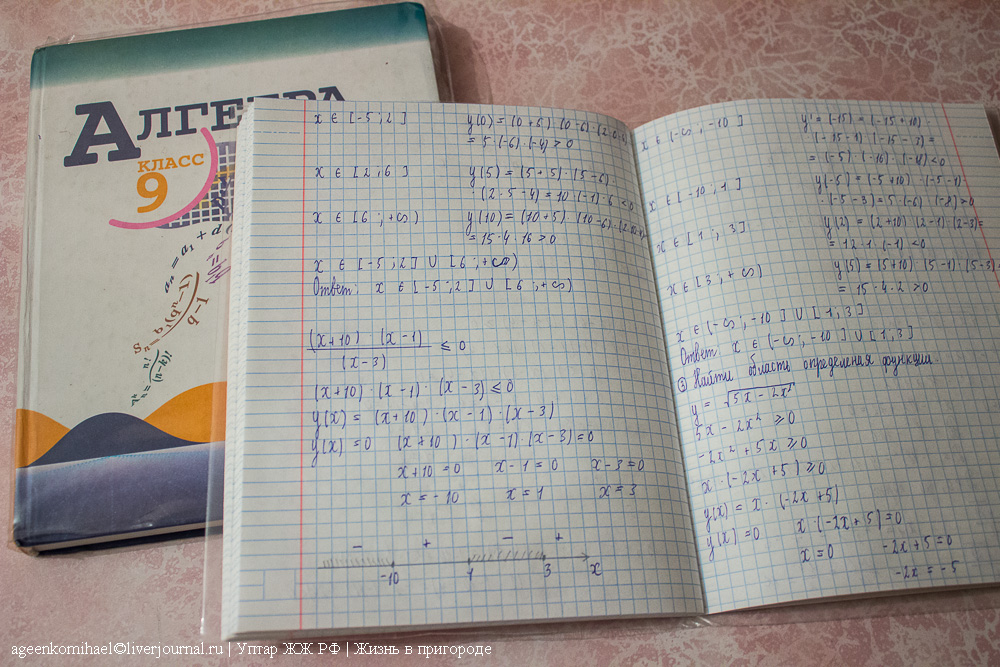 АЛГЕБРА
КЛАСС
9
x ∈ [-5 ; 2]
y(0) = (0+5) · (0-6) · (2·0-4)
= 5·(-6)·(-4) > 0
x ∈ [2 ; 6]
y(5) = (5+5) · (5-6)
· (2·5-4) = 10·(-1)·6 < 0
x ∈ [6 ; +∞)
y(10) = (10+5) (10-6)
= 15·4·16 > 0
x ∈ [-5 ; 2] ∪ [6 ; +∞)
Ответ: x ∈ [-5 ; 2] ∪ [6 ; +∞)
(x+10) (x-1)
(x-3)
≤ 0
(x+10) · (x-1) · (x-3) ≤ 0
y(x) = (x+10) · (x-1) · (x-3)
y(x) = 0 (x+10) · (x-1) · (x-3) = 0
x+10 = 0 x-1 = 0 x-3 = 0
x = -10 x = 1 x = 3
- + - +
-10 1 3 x
x ∈ (-∞ ; -10]
y(-15) = (-15+10) ·
· (-15-1) (-15-3) =
< 0
x ∈ [-10 ; 1]
y(-5) = (-5+10) · (-5-1) ·
· (-5-3) = 5·(-6)·(-8) > 0
x ∈ [1 ; 3]
y(2) = (2+10) (2-1) (2-3) =
= 12·1·(-1) < 0
x ∈ [3 ; +∞)
y(5) = (5+10) (5-1) · (5-3) =
= 15·4·2 > 0
x ∈ (-∞ ; -10] ∪ [1 ; 3]
Ответ x ∈ (-∞ ; -10] ∪ [1 ; 3]
③ Найти область определения функции.
y = √5x - 2x²
5x - 2x² ≥ 0
-2x² + 5x ≥ 0
x · (-2x + 5) ≥ 0
y(x) = x · (-2x + 5)
y(x) = 0 x · (-2x + 5) = 0
x = 0 -2x + 5 = 0
-2x = -5
aₙ = a₁ + d
Sₙ = b₁(qⁿ-1)
q-1
n!
(n-k)!
ageenkomihael©livejournal.ru | Уптар ЖЖ РФ | Жизнь в пригороде